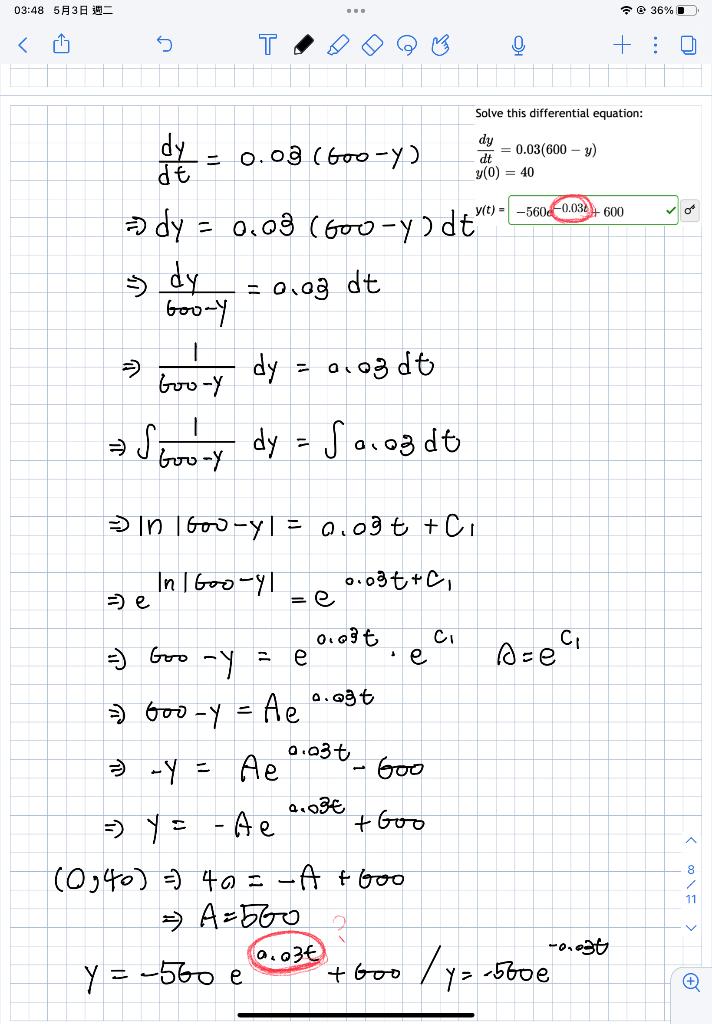 03:48 5月3日 週二
36%
Solve this differential equation:
dy/dt = 0.03(600 − y)
y(0) = 40
y(t) = −560e^−0.03t + 600
dy/dt = 0.03 (600-y)
⇒ dy = 0.03 (600-y) dt
⇒ dy/600-y = 0.03 dt
⇒ 1/600-y dy = 0.03 dt
⇒ ∫ 1/600-y dy = ∫ 0.03 dt
⇒ ln |600-y| = 0.03t + C₁
⇒ e^ln|600-y| = e^0.03t+C₁
⇒ 600-y = e^0.03t · e^C₁ A = e^C₁
⇒ 600-y = Ae^0.03t
⇒ -y = Ae^0.03t - 600
⇒ y = -Ae^0.03t + 600
(0,40) ⇒ 40 = -A + 600
⇒ A = 560 ?
y = -560 e^0.03t + 600 / y = -560e^-0.03t
8
/
11